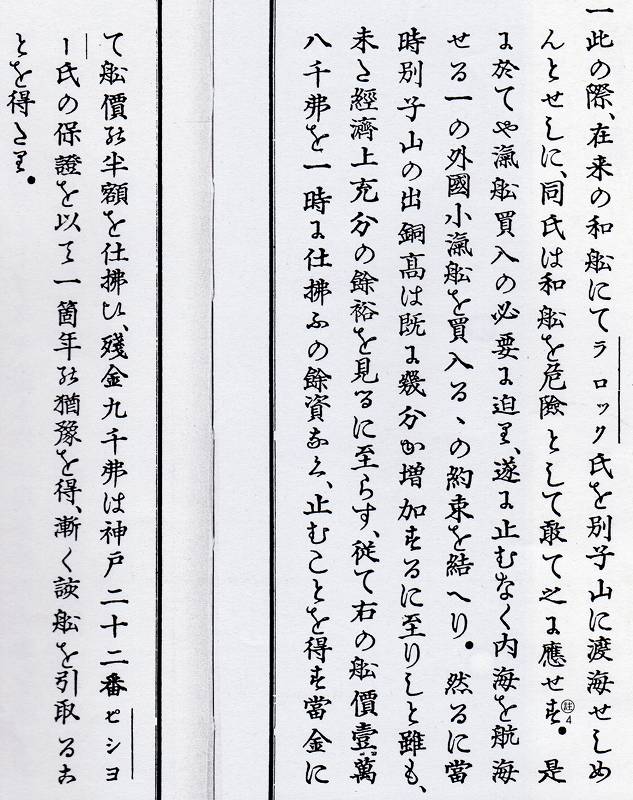 一此の際、在来の和舩にてラロック氏を別子山に渡海せしめ
んとせしに、同氏は和舩を危險として敢て之に應せす。註4 是
に於てや瀛舩買入の必要に迫り、遂に止むなく内海を航海
せる一の外國小瀛舩を買入るゝの約束を結へり。然るに當
時別子山の出銅高は既に幾分か増加するに至りしと雖も、
未た經濟上充分の餘裕を見るに至らす、従て右の舩價壹萬
八千弗を一時に仕拂ふの餘資なく、止むことを得す當金に
て舩價の半額を仕拂ひ、殘金九千弗は神戸二十二番ヒショ
ー氏の保證を以て一箇年の猶豫を得、漸く該舩を引取るこ
とを得たり。